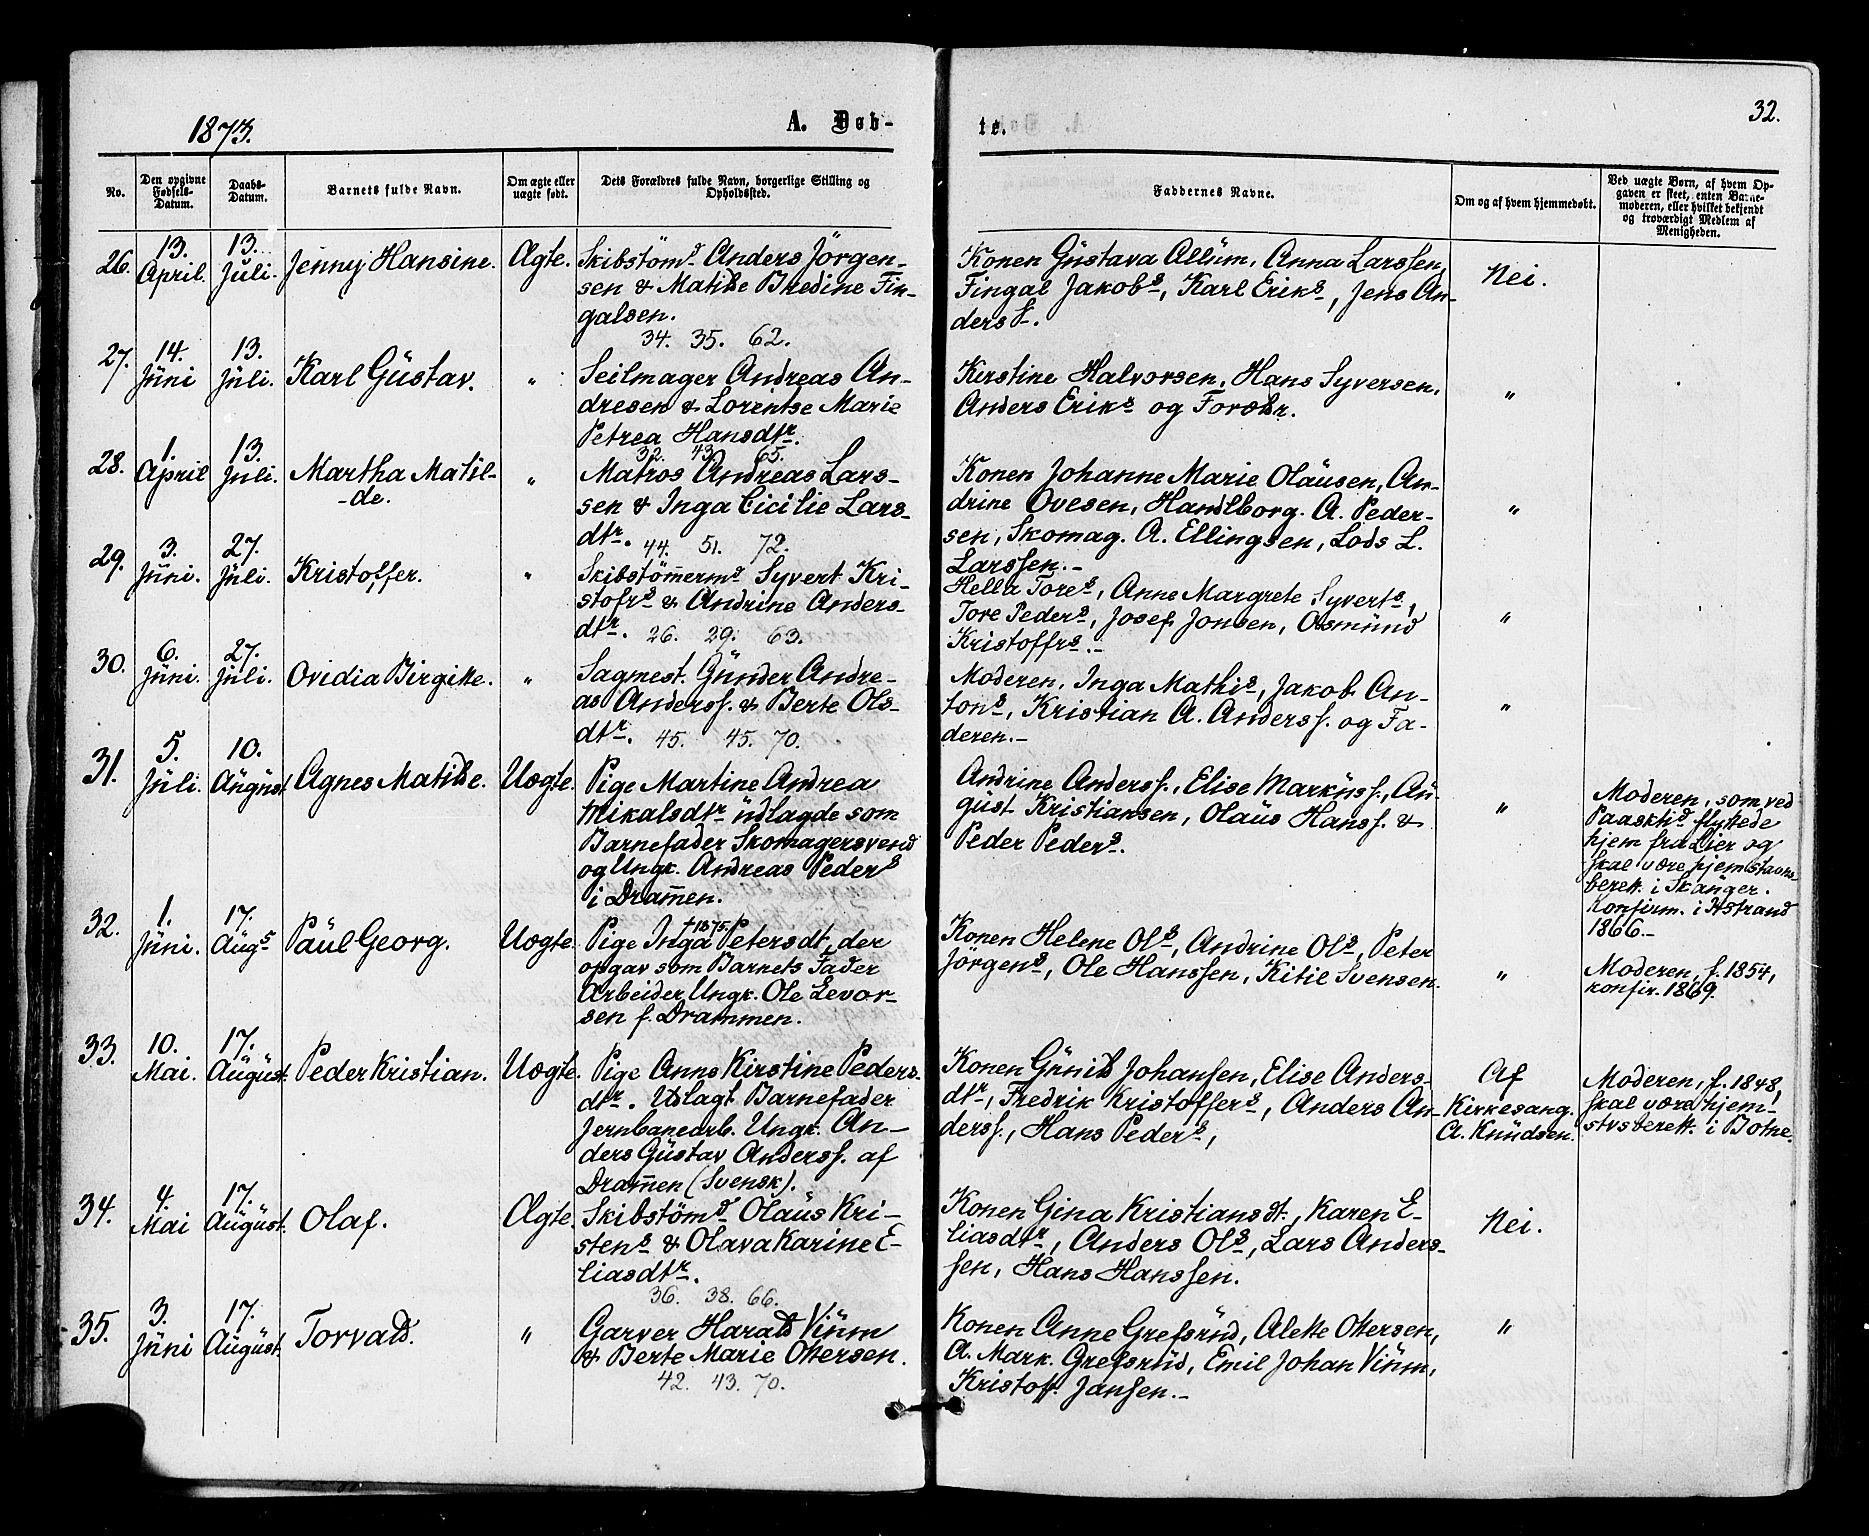 1873.
A. Døb-
te.
32.
No.
Den opgivne
Fødsels-
Datum.
Daabs-
Datum.
Barnets fulde Navn.
Om ægte eller
uægte født.
Dets Forældres fulde Navn, borgerlige Stilling og
Opholdssted.
Faddernes Navne.
Om og af hvem hjemmedøbt.
Ved uægte Børn, af hvem Op-
gaven er skeet, enten Barne-
moderen, eller hvilket bekjendt
og troværdigt Medlem af
Menigheden.
26.
13.
April.
13.
Juli.
Jenny Hansine.
Ægte.
Skibstømd Anders Jörgen-
sen & Matilde Bredine Fin-
galsen.
34. 35. 62.
Konen Gustava Allum, Anna Larssen,
Fingal Jakobs, Karl Eriks, Jens An-
derss.
Nei.
27.
14.
Juni
13.
Juli.
Karl Gustav.
"
Seilmager Andreas An-
dresen & Lorentse Marie
Petrea Hansdtr.
32. 43. 65.
Kerstine Halvorsen, Hans Syversen,
Anders Eriks og Forældr.
"
28.
1.
April
13.
Juli.
Martha Matil-
-de.
"
Matros Andreas Lars-
sen & Inga Cicilie Lars-
dtr.
44. 51. 72.
Konen Johanne Marie Olausen, An-
drine Ovesen, Handlborg. A. Peder-
sen, Skomag. A. Ellingsen, Lods L.
Larssen.-
"
29.
3.
Juni.
27.
Juli.
Kristoffer.
"
Skibstömmermd Syvert Kri-
stofrs & Andrine Anders-
dtr.
26. 29. 63.
Hella Tores, Anne Margrete Syverts,
Tore Peders, Josef Jonsen, Osmund
Kristoffrs.-
"
30.
6.
Juni.
27.
Juli.
Ovidia Birgitte.
"
Sagmest. Gunder Andre-
as Anderss. & Berte Ols-
dtr.
45. 45. 70.
Moderen, Inga Mathis, Jakob An-
tons, Kristian A. Anderss. og Fa-
deren.-
"
31.
5.
Juli.
10.
August.
Agnes Matilde.
Uægte.
Pige Martine Andrea
Mikalsdtr udlagde som
Barnefader Skomagersvend
og Ungk. Andreas Peders
i Drammen.
Andrine Anderss., Elise Markuss., Au-
gust Kristiansen, Olaus Hanss. &
Peder Peders.
"
Moderen, som ved
Paasktid flyttede
hjem fra Lier og
skal være hjemstavns-
berett. i Skanger.
Konfirm. i Hstrand
1866.-
32.
1.
Juni.
17.
Augs
Paul Georg.
Uægte.
†1875.
Pige Inga Petersdt, der
opgav som Barnets Fader
Arbeider Ungk. Ole Levor-
sen f. Drammen.
Konen Helene Ols, Andrine Ols, Peter
Jörgens, Ole Hanssen, Kitil Svensen.
"
Moderen, f. 1854,
konfir. 1869.
33.
10.
Mai.
17.
August.
Peder Kristian.
Uægte.
Pige Anne Kirstine Peders-
dtr. Udlagt Barnefader
Jernbanearb. Ungk. An-
ders Gustav Anderss. af
Drammen (Svensk).
Konen Gunild Johansen, Elise Anders-
dtr, Fredrik Kristoffers, Anders An-
derss., Hans Peders,
Af
Kirkesang.
A. Knudsen.
Moderen, f. 1848,
skal være hjem-
stvsberett. i Botne.
34.
4.
Mai
17.
August.
Olaf.
Ægte.
Skibstømd Olaus Kri-
stens & Olava Karine E-
liasdtr.
36. 38. 66.
Konen Gina Kristiansdt, Karen E-
liasdtr, Anders Ols, Lars Anders-
sen, Hans Hanssen.
Nei.
35.
3.
Juni
17.
August.
Torvald.
"
Garver Harald Vium
& Berte Marie Ottersen.
42. 43. 70.
Konen Anne Grefsrud, Alette Ottersen,
A. Mark. Grefsrud, Emil Johan Vium,
Kristoff. Jansen.-
"